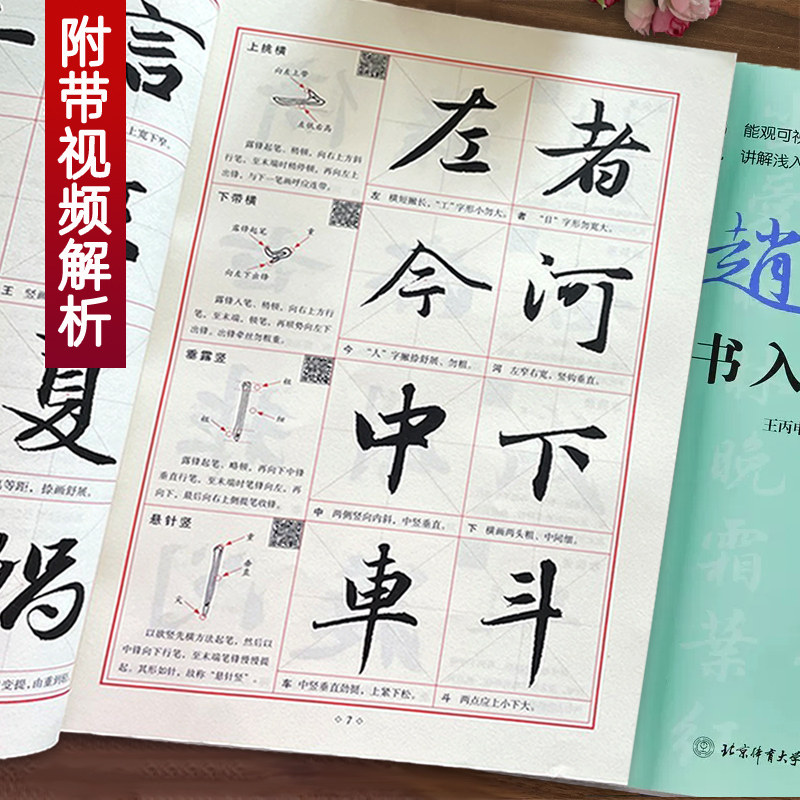 附带视频解析
信
上宽下窄。
王 竖画
夏
等距，捺画舒展。
变提，由重到轻
上挑横
向右上带
左低右高
露锋起笔、稍顿，向右上方斜
行笔，至末端时稍停顿，再向左上
出锋，与下一笔画呼应连带。
左
左 横短撇长，“工”字形小勿大。
者
者 “日”字形勿宽大。
下带横
露锋起笔
重
向左下出锋
露锋入笔、稍顿，向右上方行
笔，至末端，顿笔，再顺势向左下
出锋。出锋牵丝勿粗重。
今
今 “人”字撇捺舒展、勿粗。
河
河 左窄右宽，竖钩垂直。
垂露竖
粗
细
粗
露锋起笔、略顿，再向下中锋
垂直行笔，至末端时笔锋向左，再
向下，最后向右上侧提笔收锋。
中
中 两侧竖向内斜，中竖垂直。
下
下 横画两头粗、中间细。
悬针竖
重
垂直
尖
以欲竖先横方法起笔，然后以
中锋向下行笔，至末端笔锋慢慢提
起。其形如针，故称“悬针竖”。
車
车 中竖垂直劲挺，上紧下松。
斗
斗 两点应上小下大。
7
能观可视
讲解浅入
趙
书入
王丙申
晚
霜
葉
红
北京体育大学